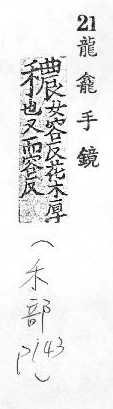 21龍龕手鏡
穠女容反花木厚也又而容反
(禾部p143)